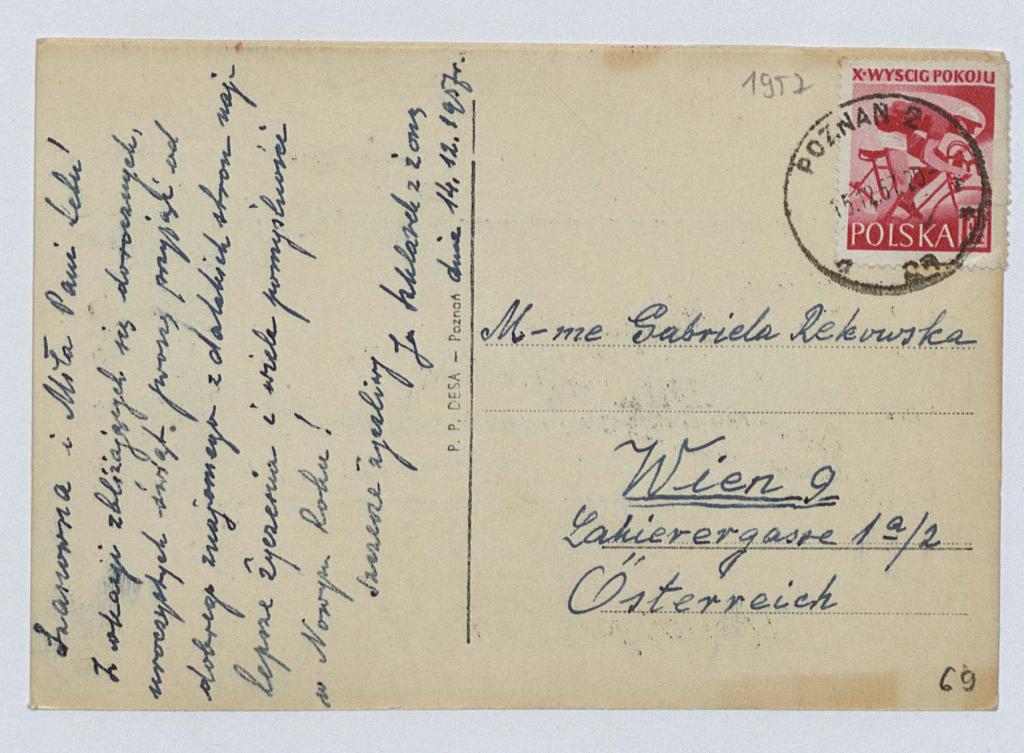 Szanowna i Miła Pani Lelu!
Z okazji zbliżających się dorocznych,
uroczystych świąt proszę przyjąć od
dobrego znajomego z dalekich stron naj-
lepsze życzenia i wiele pomyślności
w Nowym Roku!
Szczerze życzliwy
z żoną
dnia 14.12.1957r.
P. P. DESA – Poznań
1957
X·WYŚCIG POKOJU
POLSKA
POZNAŃ 2
15.12.57.20
M-me Gabriela Rekowska
Wien 9
Lakierergasse 1ª/2
Österreich
69